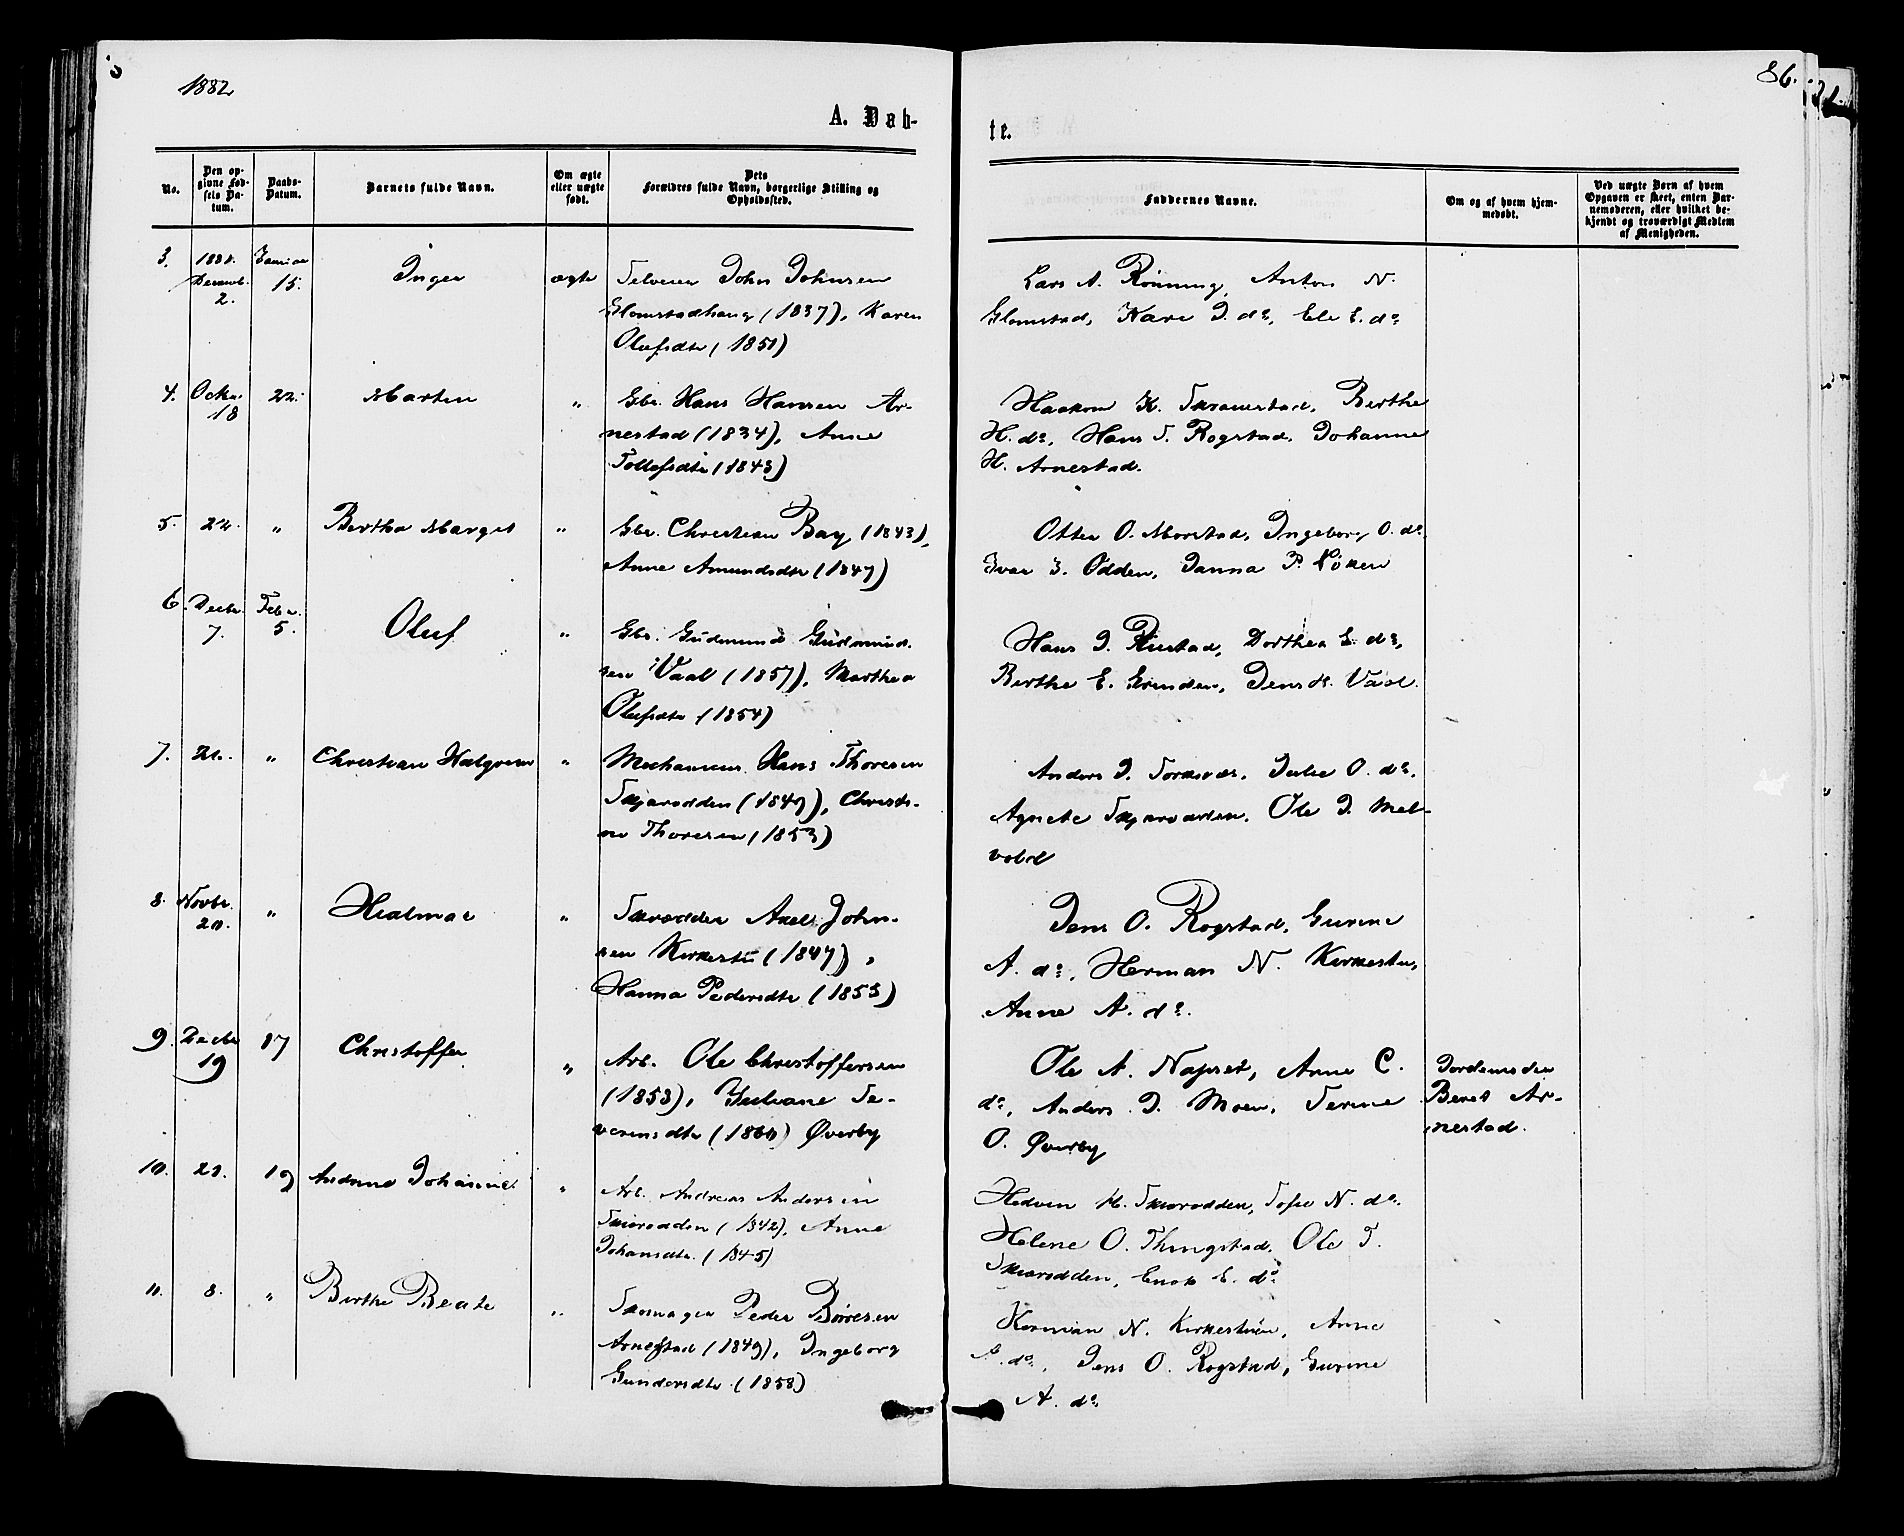 1882
86.
A. Døb-
te.
No.
Den op-
givne Fød-
sels Da-
tum.
Daabs-
Datum.
Barnets fulde Navn.
Om ægte
eller uægte
født.
Dets
Forældres fulde Navn, borgerlige Stilling og
Opholdssted.
Faddernes Navne.
Om og af hvem hjem-
medøbt.
Ved uægte Børn af hvem
Opgaven er skeet, enten Bar-
nemoderen, eller hvilket be-
kjendt og troværdigt Medlem
af Menigheden.
3.
1881.
Decemb.
2.
Januar
15.
Inger
ægte
Selveier John Johnsen
Glomstadhaug (1837), Karen
Olufsdtr (1851)
Lars A. Rönning, Anton N.
Glomstad, Kari J. do, Ele E. do
4.
Octbr.
18
22.
Marten
"
Gbr. Hans Hansen Ar-
nestad (1834), Anne
Tollefsdtr (1843)
Haakon K. Berthe
H. do, Hans S. Rogstad, Johanne
H. Arnestad.
5.
22.
"
Bertha Marget
"
Gbr. Christian Bay (1843),
Anne Amundsdtr (1847)
Otter O. Morstad, Ingeborg O. do
Ivar I. Odden, P. Löken
6.
Decbr.
7.
Febr.
5.
Oluf
"
Gbr. Gudmund Gudmund-
sen Vaal (1857), Marthea
Olufsdtr (1854)
Hans J. Dorthea E. do,
Berthe E. Grinden, Jens Vaal.
7.
"
Christian
"
Mechanicus Hans Thoresen
Skjærodden (1849), Christi-
ne Thoresen (1853)
Anders J. Julie O. do.
Agnete Ole J. Mel-
vold
8.
Novbr.
20.
"
Hialmar
"
Skrædder Axel John-
sen Kirkestu (1847),
Hanna Pedersdtr (1853)
Jens O. Rogstad, Gurine
A. do, Herman N. Kirkestu,
Anne A. do.
9.
Decbr
19
17
Christoffer
"
Arb. Ole Christoffersen
(1853), Juliane Se-
verinsdtr (1860) Øverby
Ole A. Napset, Anne C.
do, Anders J. Moen, Serine
O. Øverby
Jordemoder
Beret Ar-
nestad.
10.
19
Johanne
"
Arb. Andreas Andersen
Skiærodden (1842), Anne
Johansdtr. (1845)
Hedvin M. Skiærodden, Sofie N. do.
Helene O. Thingstad, Ole T.
Skiærodden, Enok E. do
11.
8.
"
Berthe Beate
"
Skomager Peder Börresen
Arnestad (1849), Ingeborg
Gundersdtr (1858)
Herman N. Kirkestuen, Anne
A. do, Jens O. Rogstad, Gurine
A. do